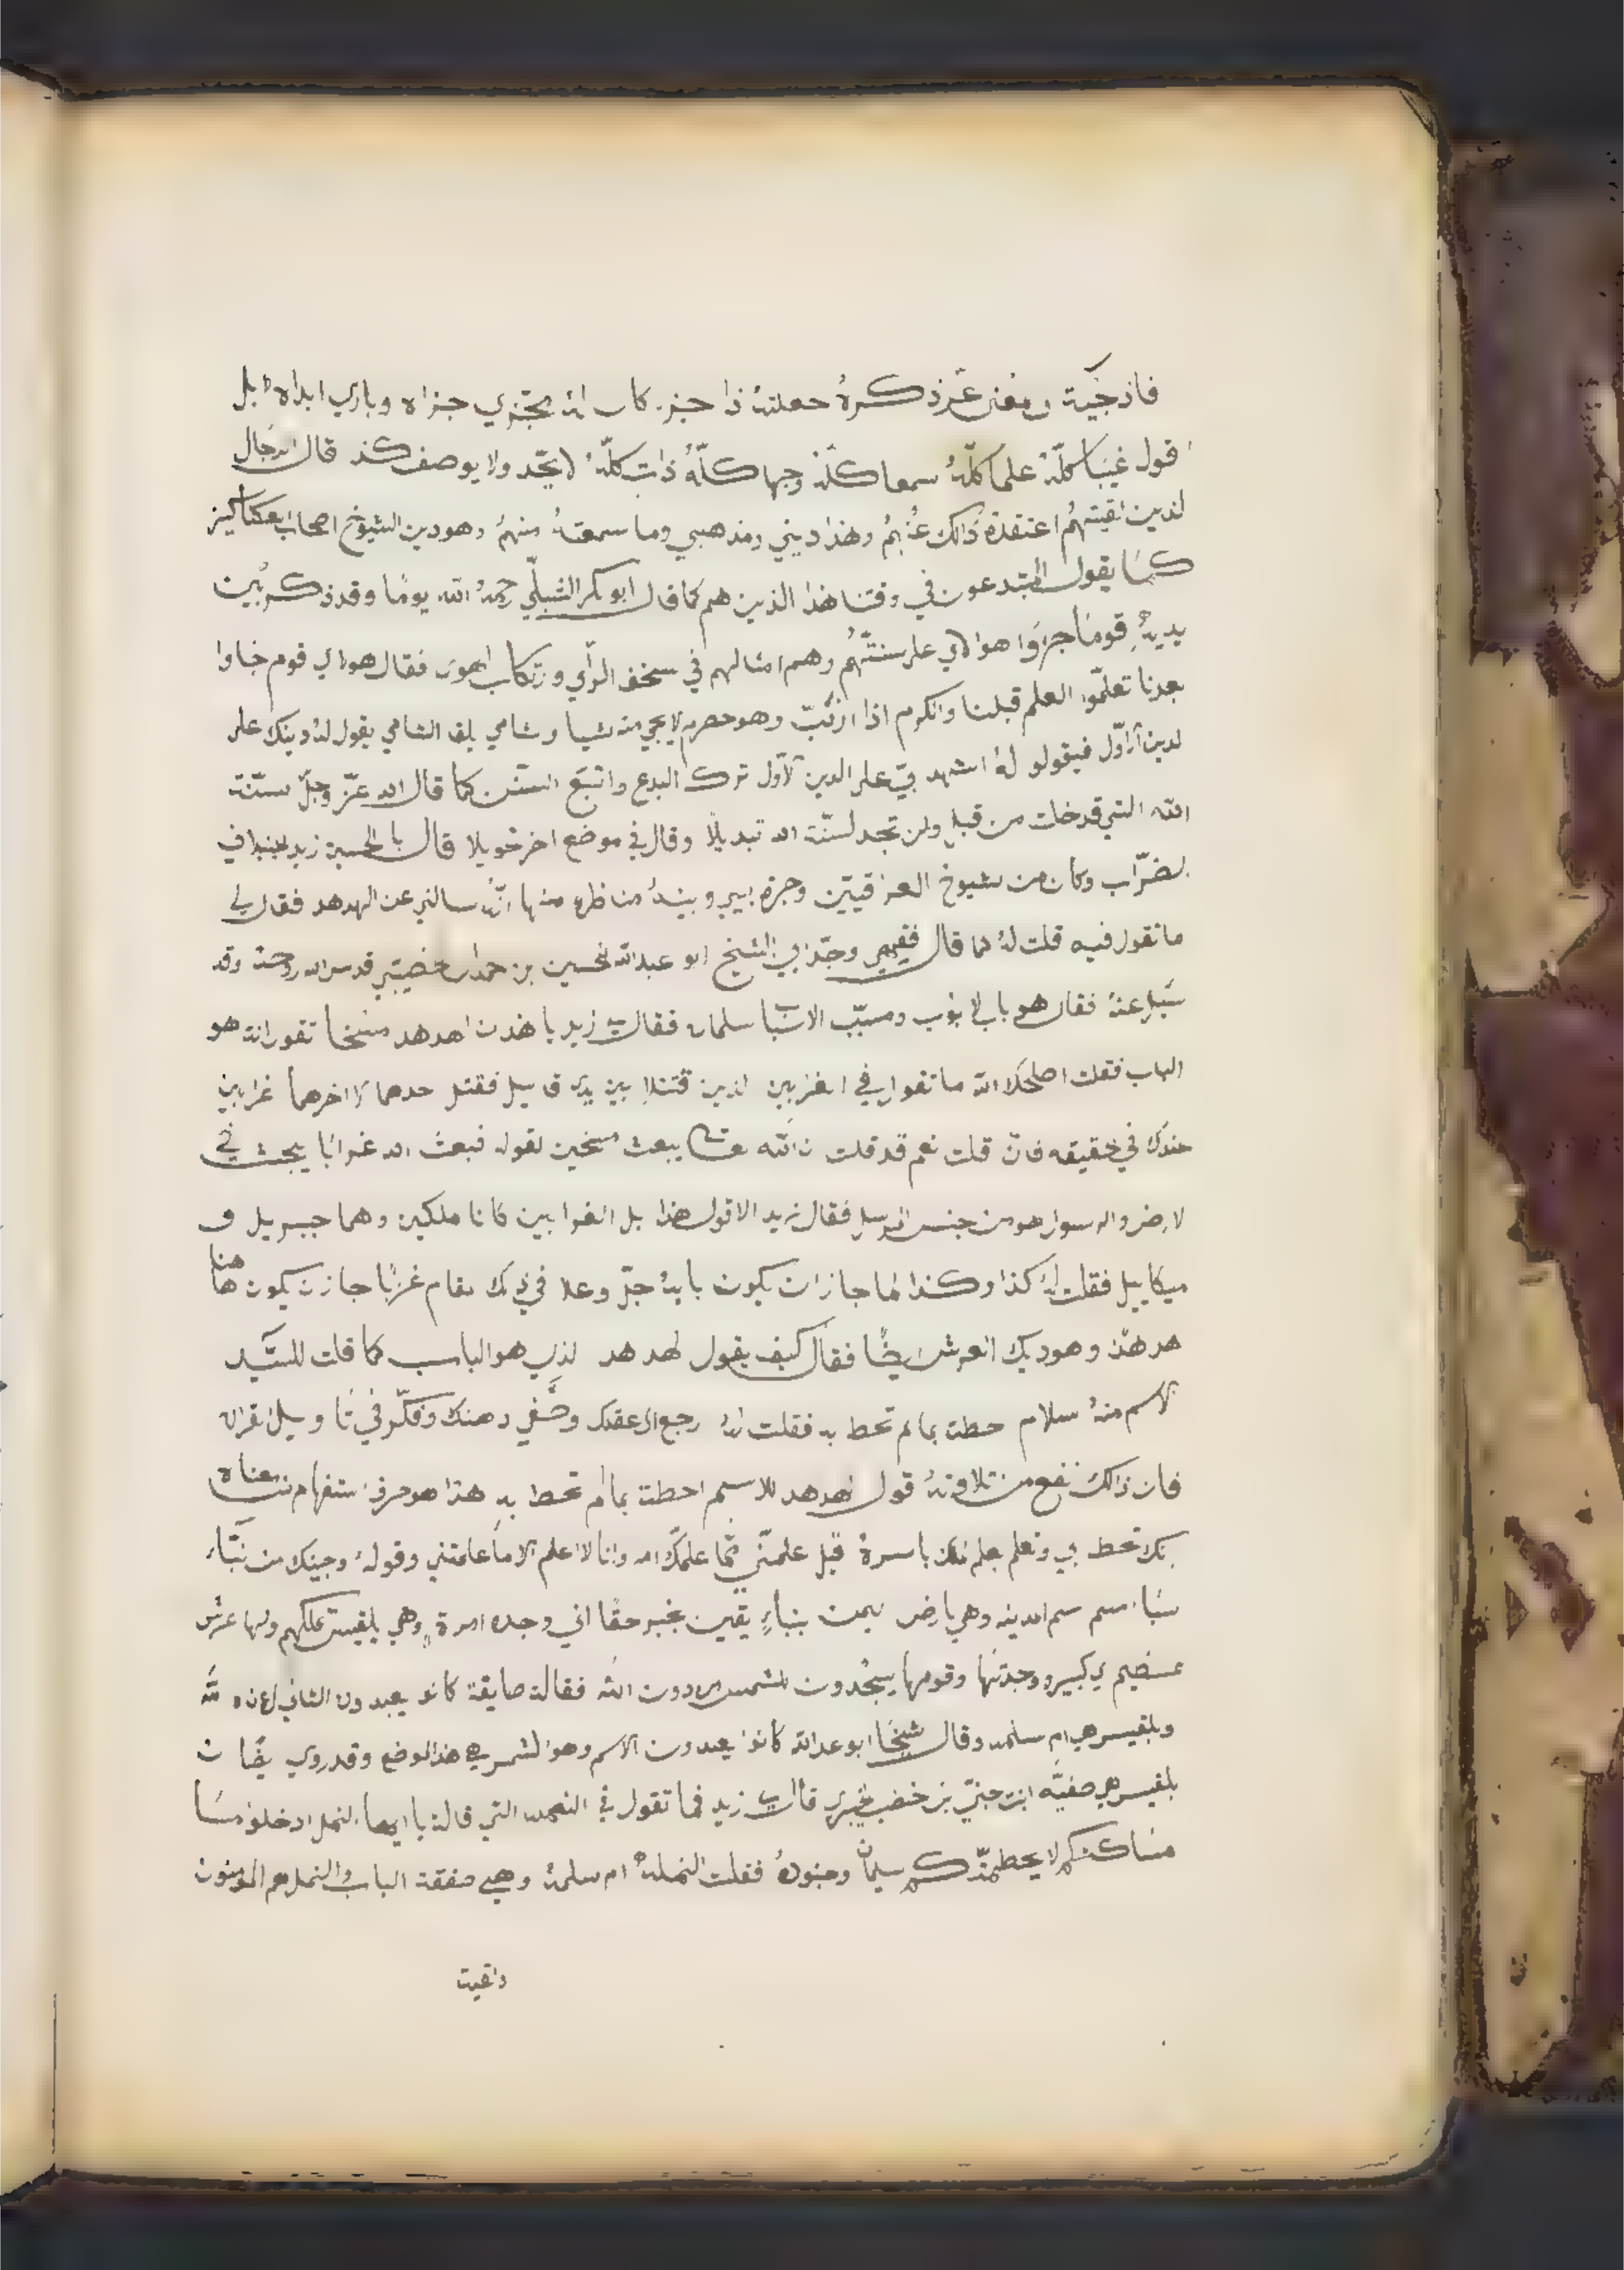 فاذ جَيت ومعنى عَز ذكرهُ جعلتهُ ذا جز كان انه يجتزي جزاه وباري ابداه بل
اقول غيبًا كلّهُ علمًا كلّهُ سمعًا كلّهُ وجهًا كلّهُ ذات كلّهُ لا يحّد ولا يوصف كذ قال الرجال
الذين لقيتهُم اعتقدهُ ذالك عنهُم وهذا ديني ومذهبي وما سمعتهُ منهمُ وهو دين الشيوخ اصحاب
كما يقول المبتدعون في وقتنا هذا الذين هم كما قال ابو بكر الشبلّي رحمهُ الله يومًا وقد ذكر بين
يديهِ قومًا جراوَا هوالاي على سنتّهُم وهم امثالهم في سخف الرّاي وارتكاب الهوى فقال هوالاي قوم جاوا
بعدنا تعلمّوا العلم قبلنا والكرم اذا ازبّب وهو حصرم لا يجي منه شيا وشامي يلقا الشامي يقول لهُ دينك على
الدين الاوّل فيقولو لهُ اشهد بيّ على الدين الاوّل ترك البدع واتبَع السنّن كما قال الله عزّ وجلّ سنّة
الله التي قد خلت من قبل ولن تجد لسنّت الله تبديلًا وقال في موضع اخر تحويلا قال با الحسين زيد
الضرّاب وكان من شيوخ العراقيّين وجرة بيني وبينهُ مناظره منها انّهُ سالني عن الهدهد فقال لي
ما تقول فيه قلت لهُ كما قال فقيهي وجدّي الشيخ ابو عبد الله الحسين بن حمدان الخصيبي قدس الله روحهُ وقد
سَيل عنهُ فقال هو باب الابواب ومسبّب الاسباب سلمان فقال لي زيد يا هذا ان الهدهد مسخًا تقول انه هو
الباب فقلت اصلحك الله ما تقول في الغرابين الذين اقتتلا بين يدي قابيل فقتل احدهما الاخر هما غرابين
عندك في الحقيقه فان قلت نعم قد قلت ان الله تعالى يبعث مسخين لقوله فبعث الله غرابًا يبحث في
الارض والرسول هو من جنس المرسل فقال زيد لا اقول هذا بل الغرابين كانا ملكين وهما جبريل و
ميكاييل فقلت لهُ كذا وكذا لما جاز ان يكون بابهُ جلّ وعلا في ذلك مقام غرابًا جاز ان يكون هاهنا
هدهدًا وهو ديك العرش ايضًا فقال كيف يقول الهدهد الذي هو الباب كما قلت للسيّد
الاسم منهُ سلام احطت بما لم تحط به فقلت لهُ ارجع الى عقلك وصّفي دهنك وفكّر في تاويل القران
فان ذالك انفع من تلاوتهُ قول الهدهد للاسم احطت بما لم تحط بهِ هذا هو حرف استفهام معناه
انك تحط بي وتعلم بعلم الله باسرهُ قبل علمتّني ممّا علمّك الله وانا لا اعلم الا ما علمتني وقوله وجيتك من نّبَاء
سَبا اسم اسم المدينه وهي بارض اليمن بنباءٍ يقين بخبر حقًا اني وجدة امرة وهي بلقيس تملكهم ولها عرش
عضيم اي كبير ووجدتها وقومها يسجُدون للشمس من دون الله فقالة طايفة كانو يعبدون الثاني لعنه الله
وبلقيس هي ام سلمه وقال شيخنا ابو عبد الله كانوا يعبدون الاسم وهو الشمس في هذا الموضع وقد روي ايضًا ان
بلقيس هي صفيّه ابنت حييّ بن اخطب الخيبري قال لي زيد فما تقول في النمله التي قالة يا ايها النمل ادخلو مسَا
مساكنكم لا يحطمنّكم سليمان وجنودهُ فقلت النملهُ ام سلمهُ وهي صفقة الباب والنمل هم المومنون
واقيت